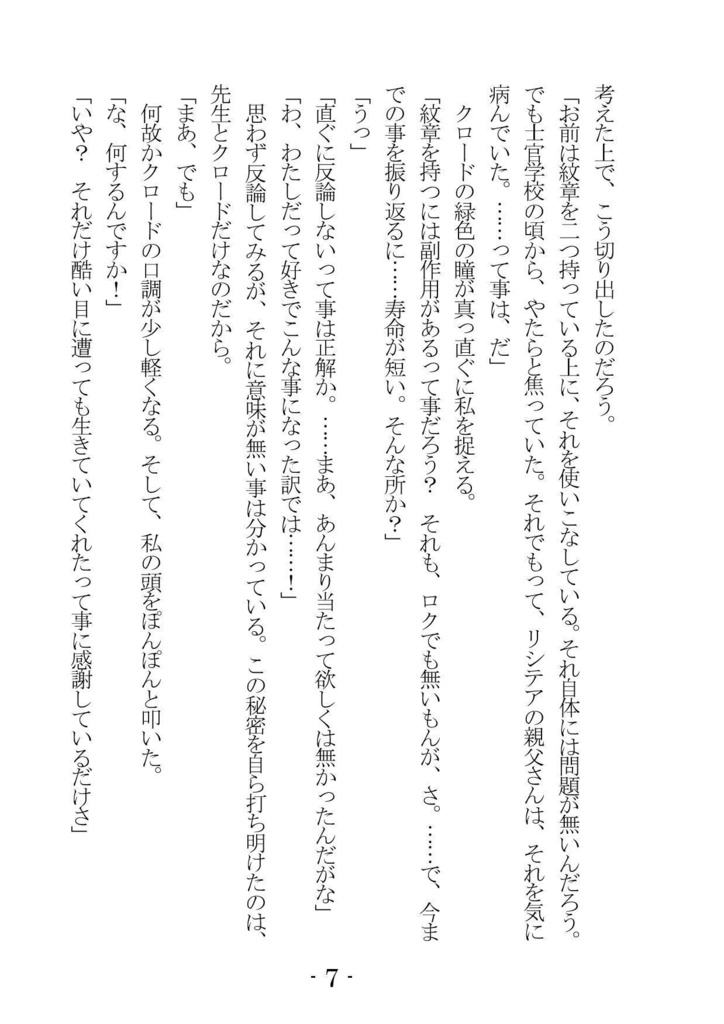 考えた上で、こう切り出したのだろう。
「お前は紋章を二つ持っている上に、それを使いこなしている。それ自体には問題が無いんだろう。
でも士官学校の頃から、やたらと焦っていた。それでもって、リシテアの親父さんは、それを気に
病んでいた。……って事は、だ」
　クロードの緑色の瞳が真っ直ぐに私を捉える。
「紋章を持つには副作用があるって事だろう？　それも、ロクでも無いもんが、さ。……で、今ま
での事を振り返るに……寿命が短い。そんな所か？」
「うっ」
「直ぐに反論しないって事は正解か。……まあ、あんまり当たって欲しくは無かったんだがな」
「わ、わたしだって好きでこんな事になった訳では……！」
　思わず反論してみるが、それに意味が無い事は分かっている。この秘密を自ら打ち明けたのは、
先生とクロードだけなのだから。
「まあ、でも」
　何故かクロードの口調が少し軽くなる。そして、私の頭をぽんぽんと叩いた。
「な、何するんですか！」
「いや？　それだけ酷い目に遭っても生きていてくれたって事に感謝しているだけさ」
- 7 -